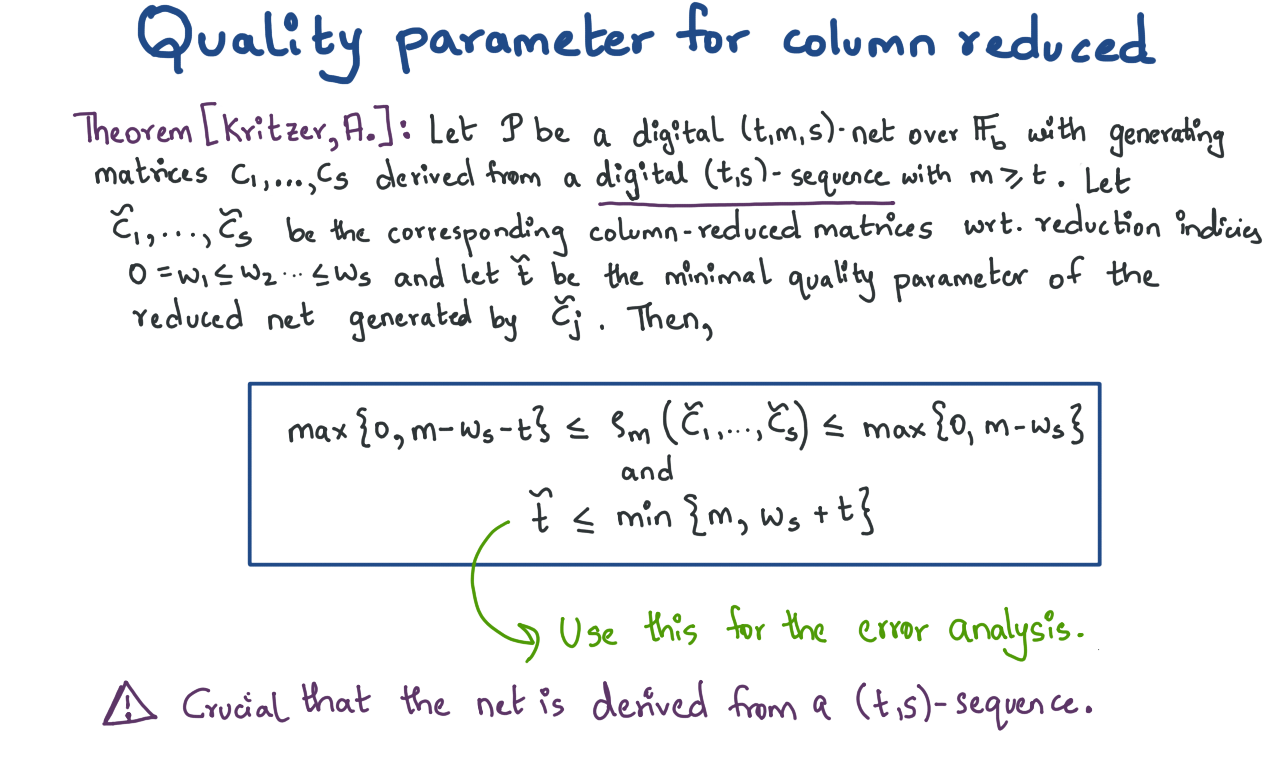 Quality parameter for column reduced
Theorem [Kritzer, A.]: Let P be a digital (t,m,s)-net over 𝔽_b with generating
matrices C₁,...,Cs derived from a digital (t,s)-sequence with m ⩾ t. Let
C̆₁,...,C̆s be the corresponding column-reduced matrices wrt. reduction indicies
0 = w₁ ≤ w₂ ... ≤ ws and let t̆ be the minimal quality parameter of the
reduced net generated by C̆j. Then,
max{0, m-ws-t} ≤ ρm(C̆₁,...,C̆s) ≤ max{0, m-ws}
and
t̆ ≤ min {m, ws + t}
Use this for the error analysis.
⚠ Crucial that the net is derived from a (t,s)-sequence.